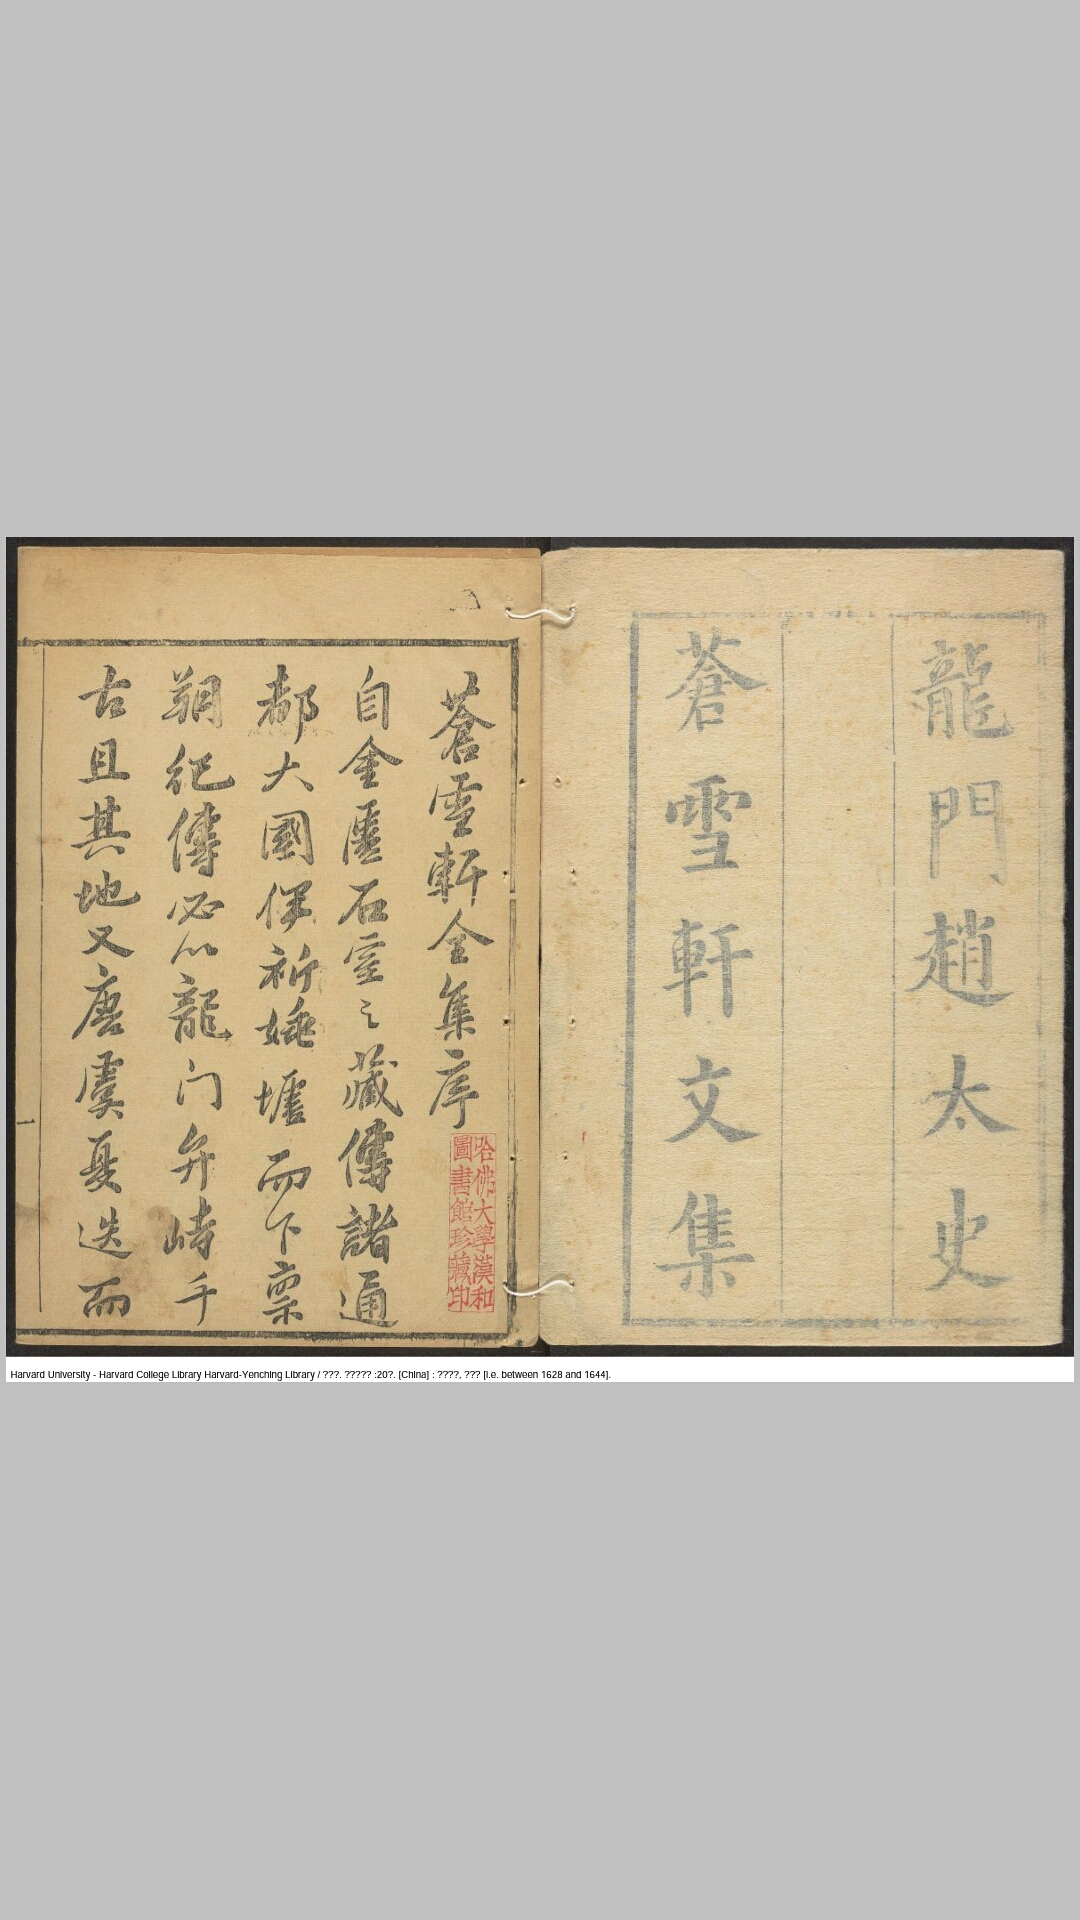 龍門趙太史
蒼雪軒文集
蒼雪軒全集序
哈佛大學漢和
圖書館珍藏印
自金匱石室之藏傳諸通
都大國祈墟而下禀
朔紀傳必以龍门弁峙千
古且其地又唐虞夏迭而
一
Harvard University - Harvard College Library Harvard-Yenching Library / ???. ????? :20?. [China] : ????, ??? [i.e. between 1628 and 1644].